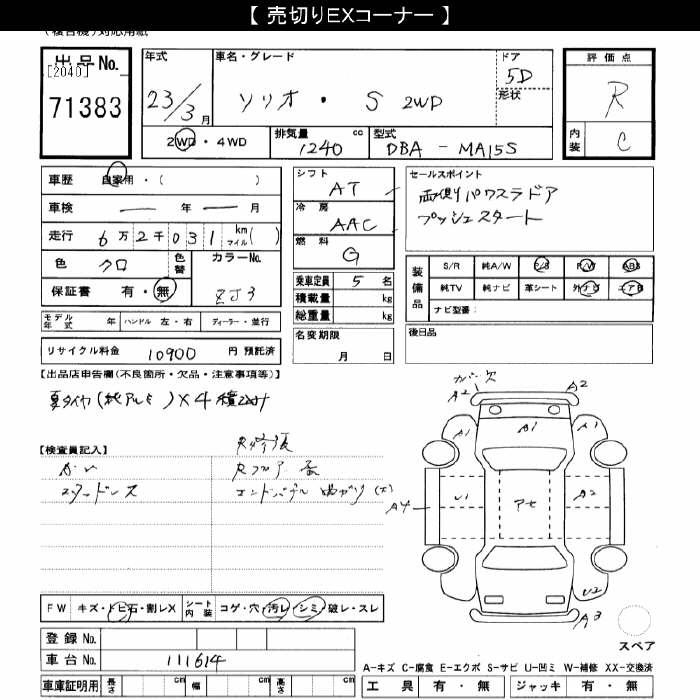 【 売切りEXコーナー 】
(複合機)対応用紙
出品No.
[2040]
71383
年式
23/3月
車名・グレード
ソリオ・ S 2WD
ドア
5D
形状
評価点
R
内装
C
2WD・4WD
排気量 cc
1240
型式
DBA - MA15S
車歴 自家用・( )
車検 — 年 — 月
走行 6万2千031 km マイル( )
色 クロ
色替
カラーNo.
ZJ3
保証書 有・無
モデル年式 年
ハンドル 左・右
ディーラー・並行
リサイクル料金 10900 円 預託済
シフト
AT
冷房
AAC
燃料
G
乗車定員 5 名
積載量 kg
総重量 kg
名変期限
月 日
セールスポイント
両側パワスラドア
プッシュスタート
装備品
S/R 純A/W P/S P/W ABS
純TV 純ナビ 革シート 外ナビ エアB
ナビ型番：
後日品
【出品店申告欄(不良箇所・欠品・注意事項等)】
夏タイヤ(純アルミ)×4 積込み
【検査員記入】
スタッドレス
カバー欠
A2
A2
A1
A1
A1
U1
アセ
A2
A4
U2
A3
スペア
FW キズ・トビ石・割レX
シート内装 コゲ・穴・汚レ・シミ・破レ・スレ
登録No.
車台No. 111614
車庫証明用 長さ cm 幅 cm 高さ cm
A-キズ C-腐食 E-エクボ S-サビ U-凹ミ W-補修 XX-交換済
工具 有・無 ジャッキ 有・無